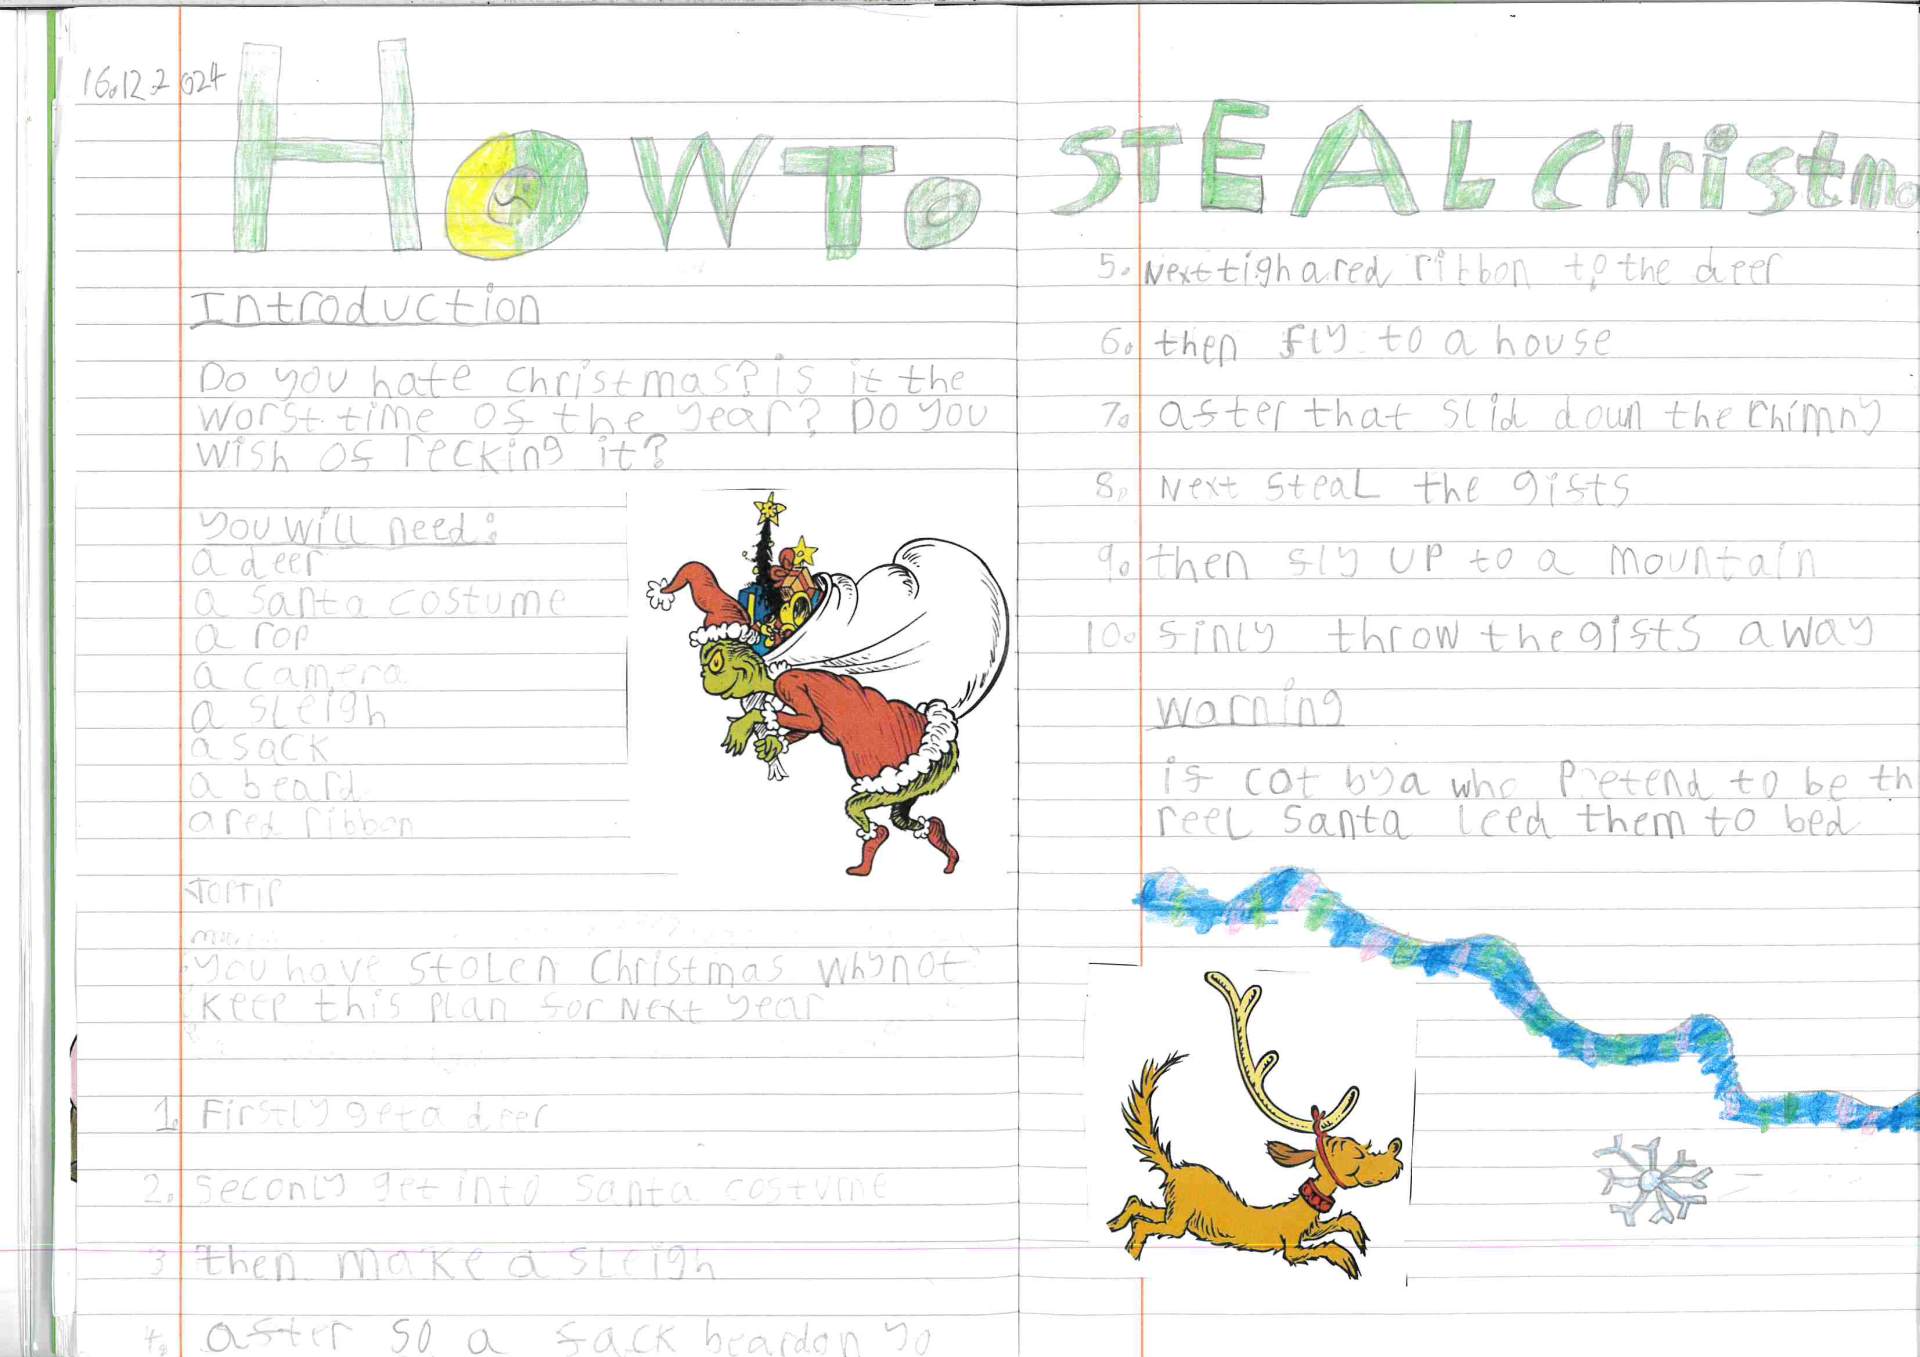 16.12.2024
HOW To
Introduction
Do you hate christmas? is it the
worst time of the year? Do you
wish of recking it?
you will need:
a deer
a santa costume
a rop
a camera
a sleigh
a sack
a beard
a red ribbon
you have stolen Christmas whynot
keep this plan for next year
1. Firstly get a deer
2. seconly get into santa costume
3 then make a sleigh
4. after so a fack beardon yo
STEAL Christma
5. Next tigh a red ribbon to the deer
6. then fly to a house
7. after that slid down the chimny
8. Next steal the gifts
9. then fly up to a mountain
10. finly throw the gifts away
warning
if cot by a who Pretend to be th
reel santa leed them to bed